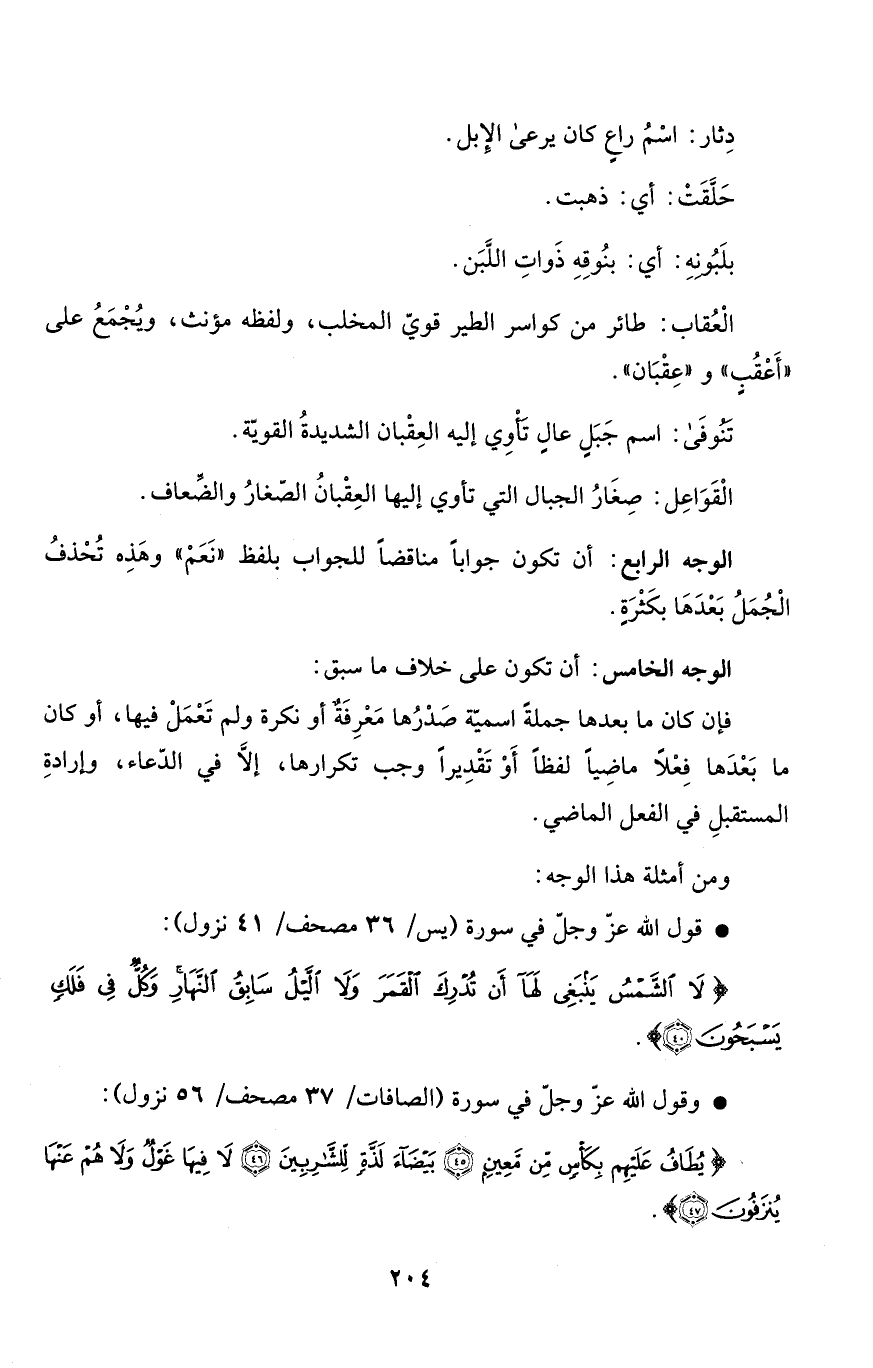 دِثار: اسْمُ راعٍ كان يرعىٰ الإِبل.
حَلَّقَتْ: أي: ذهبت.
بلَبُونِهِ: أي: بنُوقِهِ ذَواتِ اللَّبَن.
الْعُقاب: طائر من كواسر الطير قويّ المخلب، ولفظه مؤنث، ويُجْمَعُ على
«أَعْقُبٍ» و «عِقْبَان».
تَنُوفَىٰ: اسم جَبَلٍ عالٍ تَأْوِي إليه العِقْبان الشديدةُ القويّة.
الْقَوَاعِل: صِغَارُ الجبال التي تأوي إليها العِقْبانُ الصّغارُ والضِّعاف.
الوجه الرابع: أن تكون جواباً مناقضاً للجواب بلفظ «نَعَمْ» وهَذِه تُحْذفُ
الْجُمَلُ بَعْدَهَا بكَثْرَةٍ.
الوجه الخامس: أن تكون على خلاف ما سبق:
فإن كان ما بعدها جملةً اسميّة صَدْرُها مَعْرِفَةٌ أو نكرة ولم تَعْمَلْ فيها، أو كان
ما بَعْدَها فِعْلاً ماضِياً لفظاً أَوْ تَقْدِيراً وجب تكرارها، إلاَّ في الدّعاء، وإرادةِ
المستقبلِ في الفعل الماضي.
ومن أمثلة هذا الوجه:
● قول الله عزّ وجلّ في سورة (يس/ ٣٦ مصحف/ ٤١ نزول):
﴿لَا ٱلشَّمْسُ يَنۢبَغِى لَهَآ أَن تُدْرِكَ ٱلْقَمَرَ وَلَا ٱلَّيْلُ سَابِقُ ٱلنَّهَارِ ۚ وَكُلٌّ فِى فَلَكٍ
يَسْبَحُونَ ٤٠﴾.
● وقول الله عزّ وجلّ في سورة (الصافات/ ٣٧ مصحف/ ٥٦ نزول):
﴿يُطَافُ عَلَيْهِم بِكَأْسٍ مِّن مَّعِينٍ ٤٥ بَيْضَآءَ لَذَّةٍ لِّلشَّٰرِبِينَ ٤٦ لَا فِيهَا غَوْلٌ وَلَا هُمْ عَنْهَا
يُنزَفُونَ ٤٧﴾.
٢٠٤